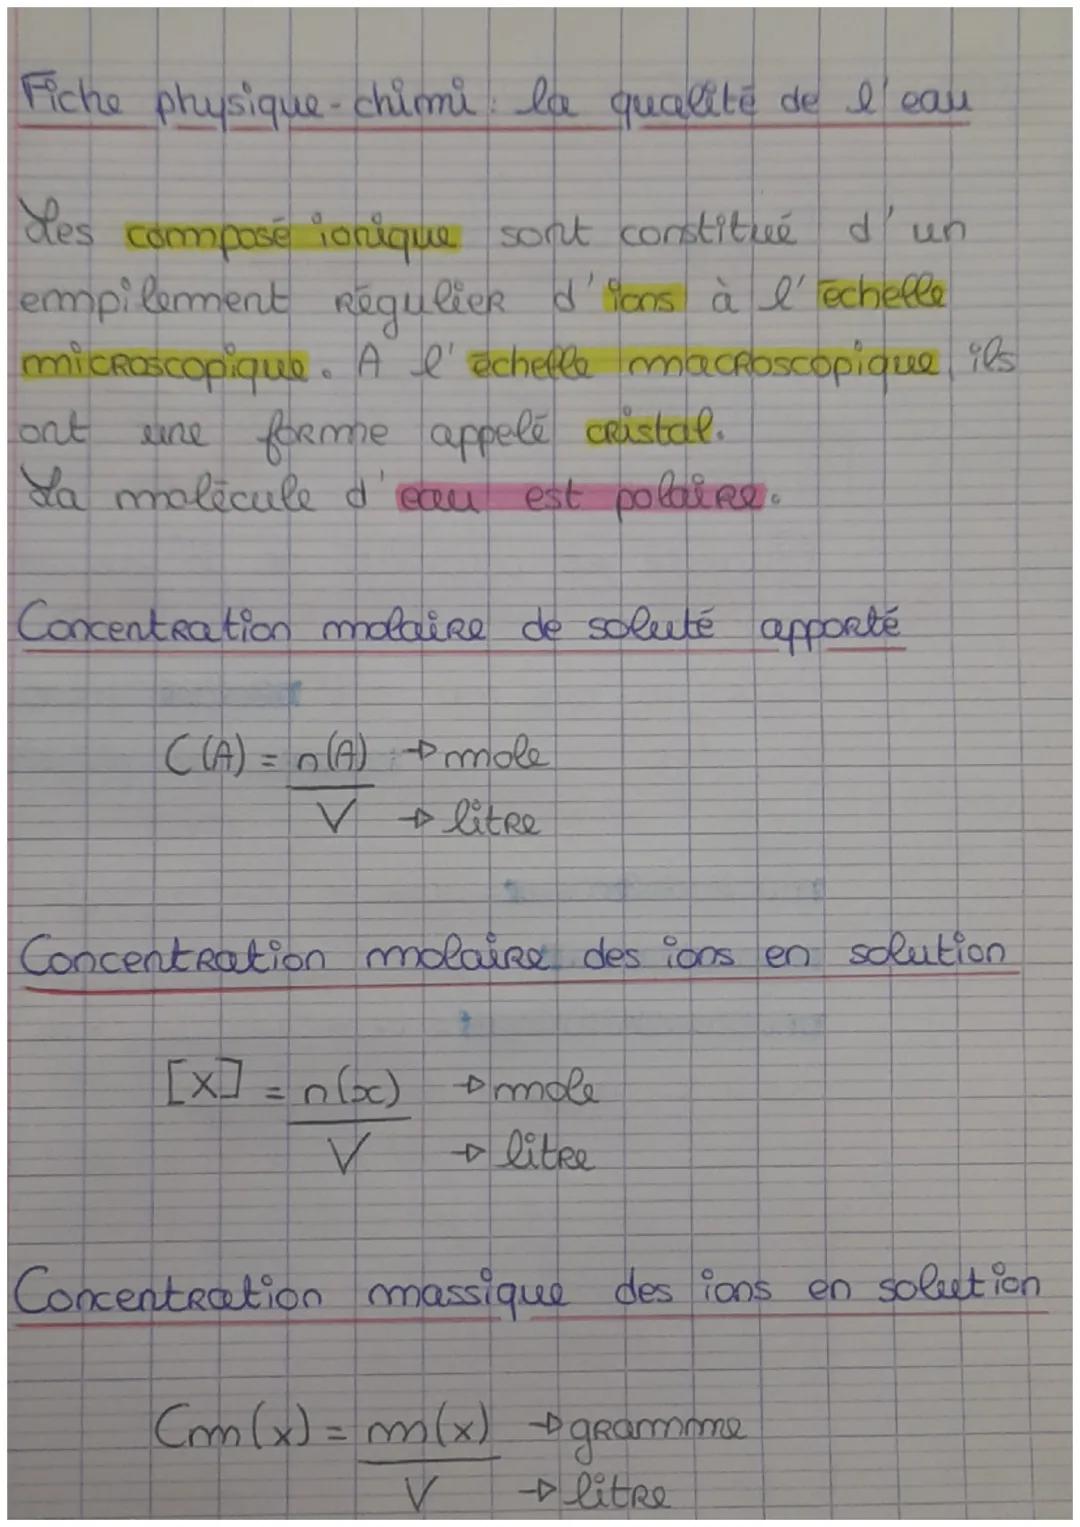 Fiche physique-chimi : la qualité de l'eau
Les composé ionique sont constitué d'un
empilement régulier d'ions à l'échelle
microscopique. A l'échelle macroscopique ils
ont une forme appelé cristal.
La molécule d'eau est polaire.
Concentration molaire de soluté apporté
C(A) = n(A) → mole
V → litre
Concentration molaire des ions en solution
[X] = n(x) → mole
V → litre
Concentration massique des ions en solution
Cm(x) = m(x) → gramme
V → litre